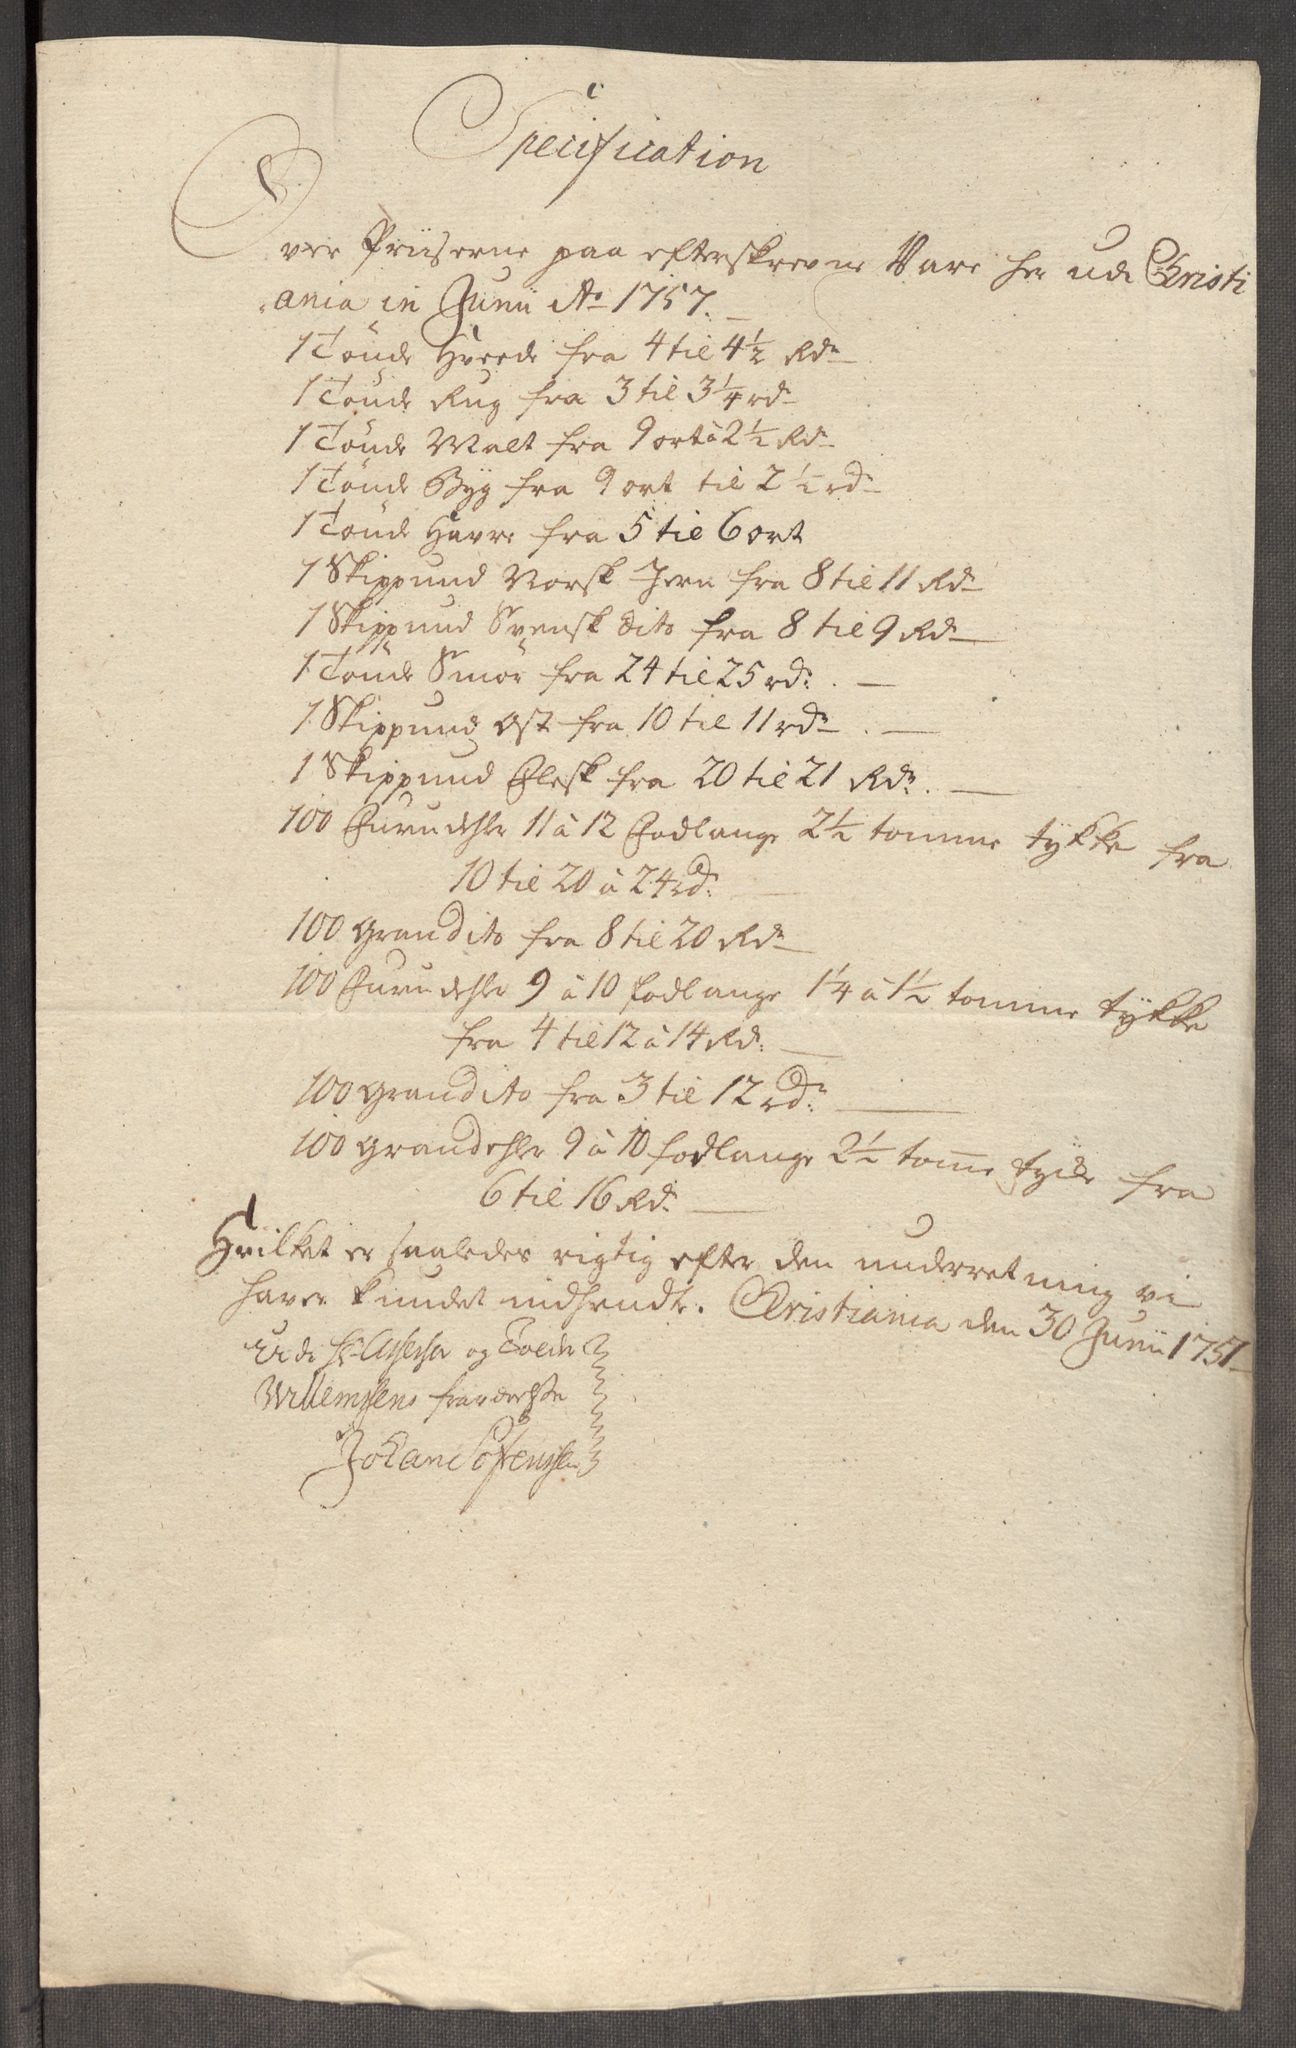 Specification
Over Priiserne paa efterskrevne Vare her udi Christi
ania in Junii Ao 1757.
1 Tönde Hveede fra 4 til 4½ Rdr
1 Tönde Rug fra 3 til 3¼ rdr
1 Tönde Malt fra 9 ort à 2½ Rdr
1 Tönde Byg fra 9 ort til 2½ rdr
1 Tönde Havre fra 5 til 6 ort
1 Skippund Norsk Jern fra 8 til 11 Rdr
1 Skippund Svensk dito fra 8 til 9 Rdr
1 Tönde Smör fra 24 til 25 rdr.
1 Skippund Ost fra 10 til 11 rdr.
1 Skippund Flesk fra 20 til 21 Rdr.
100 Furu dehle 11 à 12 Fodlange 2½ tomme tykke fra
10 til 20 à 24 rdr.
100 Gran dito fra 8 til 20 Rdr
100 Furu dehle 9 à 10 fodlange 1¼ à 1½ tomme tykke
fra 4 til 12 à 14 Rdr.
100 Gran dito fra 3 til 12 rdr.
100 Gran dehle 9 à 10 fodlange 2½ tome tycke fra
6 til 16 Rdr.
Hvilket er saaledes rigtig efter den underretning vi
haver kundet indhendte. Christiania den 30 Junii 1757
Udi Hr Assessor og Tolder
Willemsens fraværelse
Johan Sörenssen